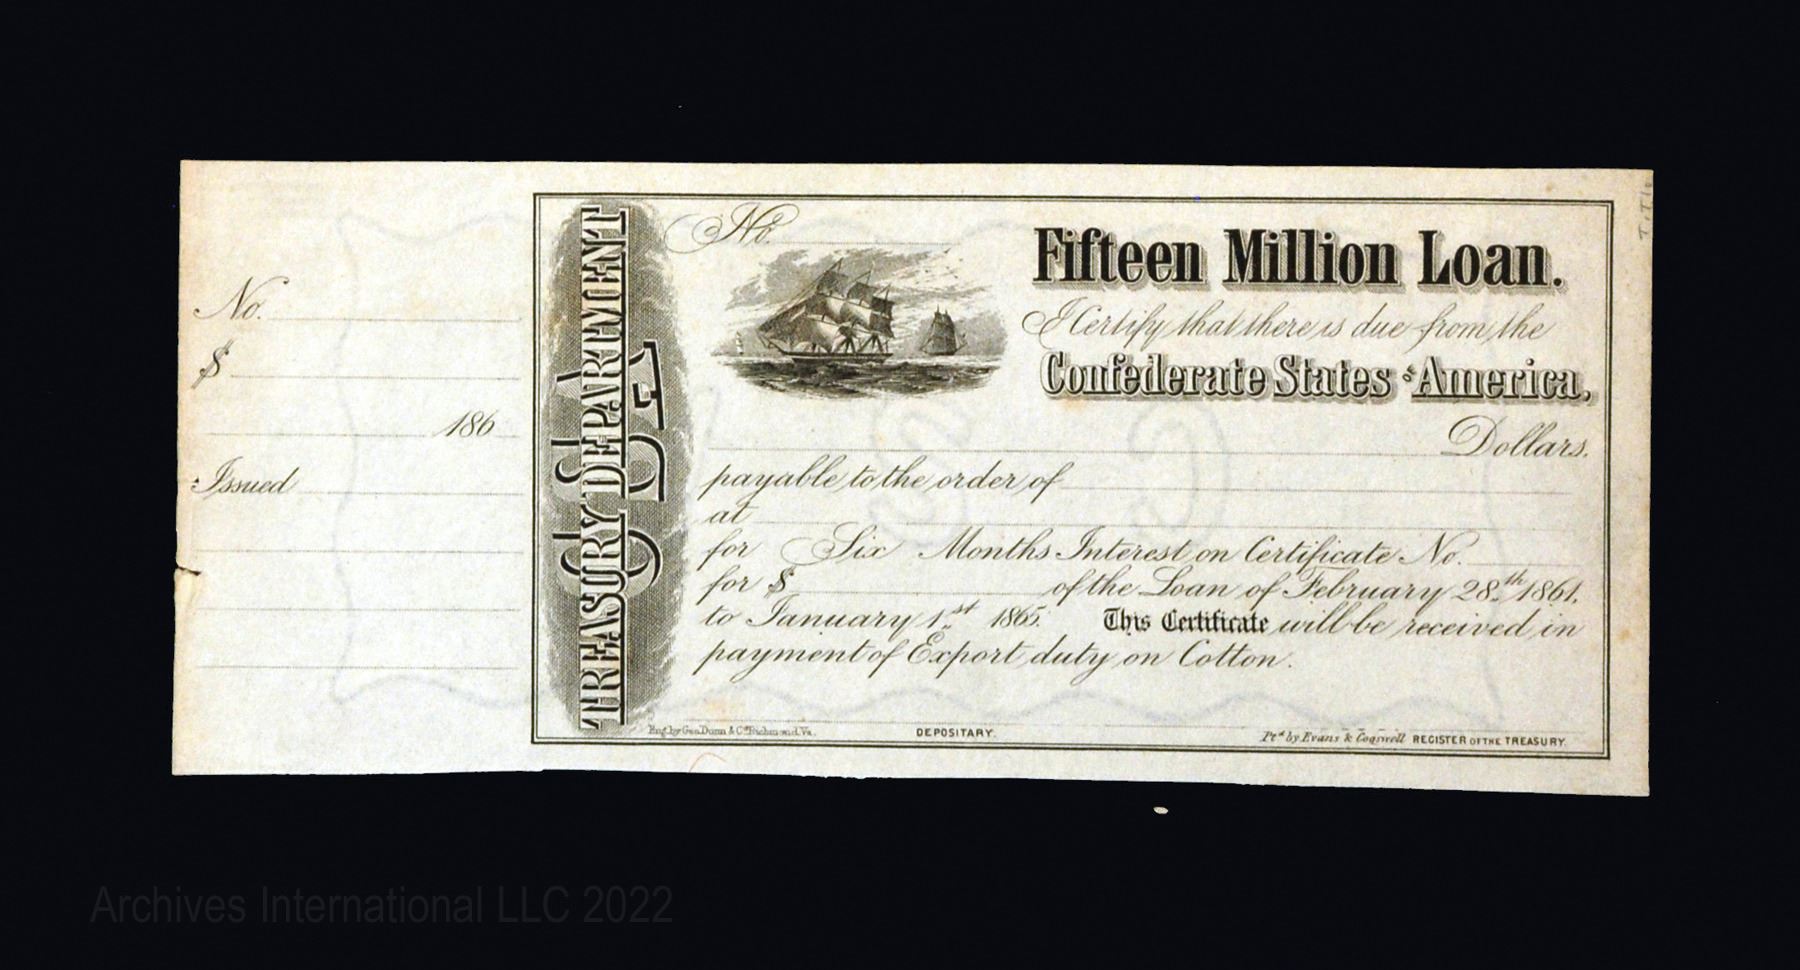 No.
$
186
Issued
TREASURY DEPARTMENT
CSA
No.
Fifteen Million Loan.
I Certify that there is due from the
Confederate States of America,
Dollars.
payable to the order of
at
for Six Months Interest on Certificate No.
for $ of the Loan of February 28th 1861.
to January 1st 1865. This Certificate will be received in
payment of Export duty on Cotton.
Eng. by Geo. Dunn & Co. Richmond, Va. DEPOSITARY. Ptd. by Evans & Cogswell REGISTER OF THE TREASURY.
Archives International LLC 2022